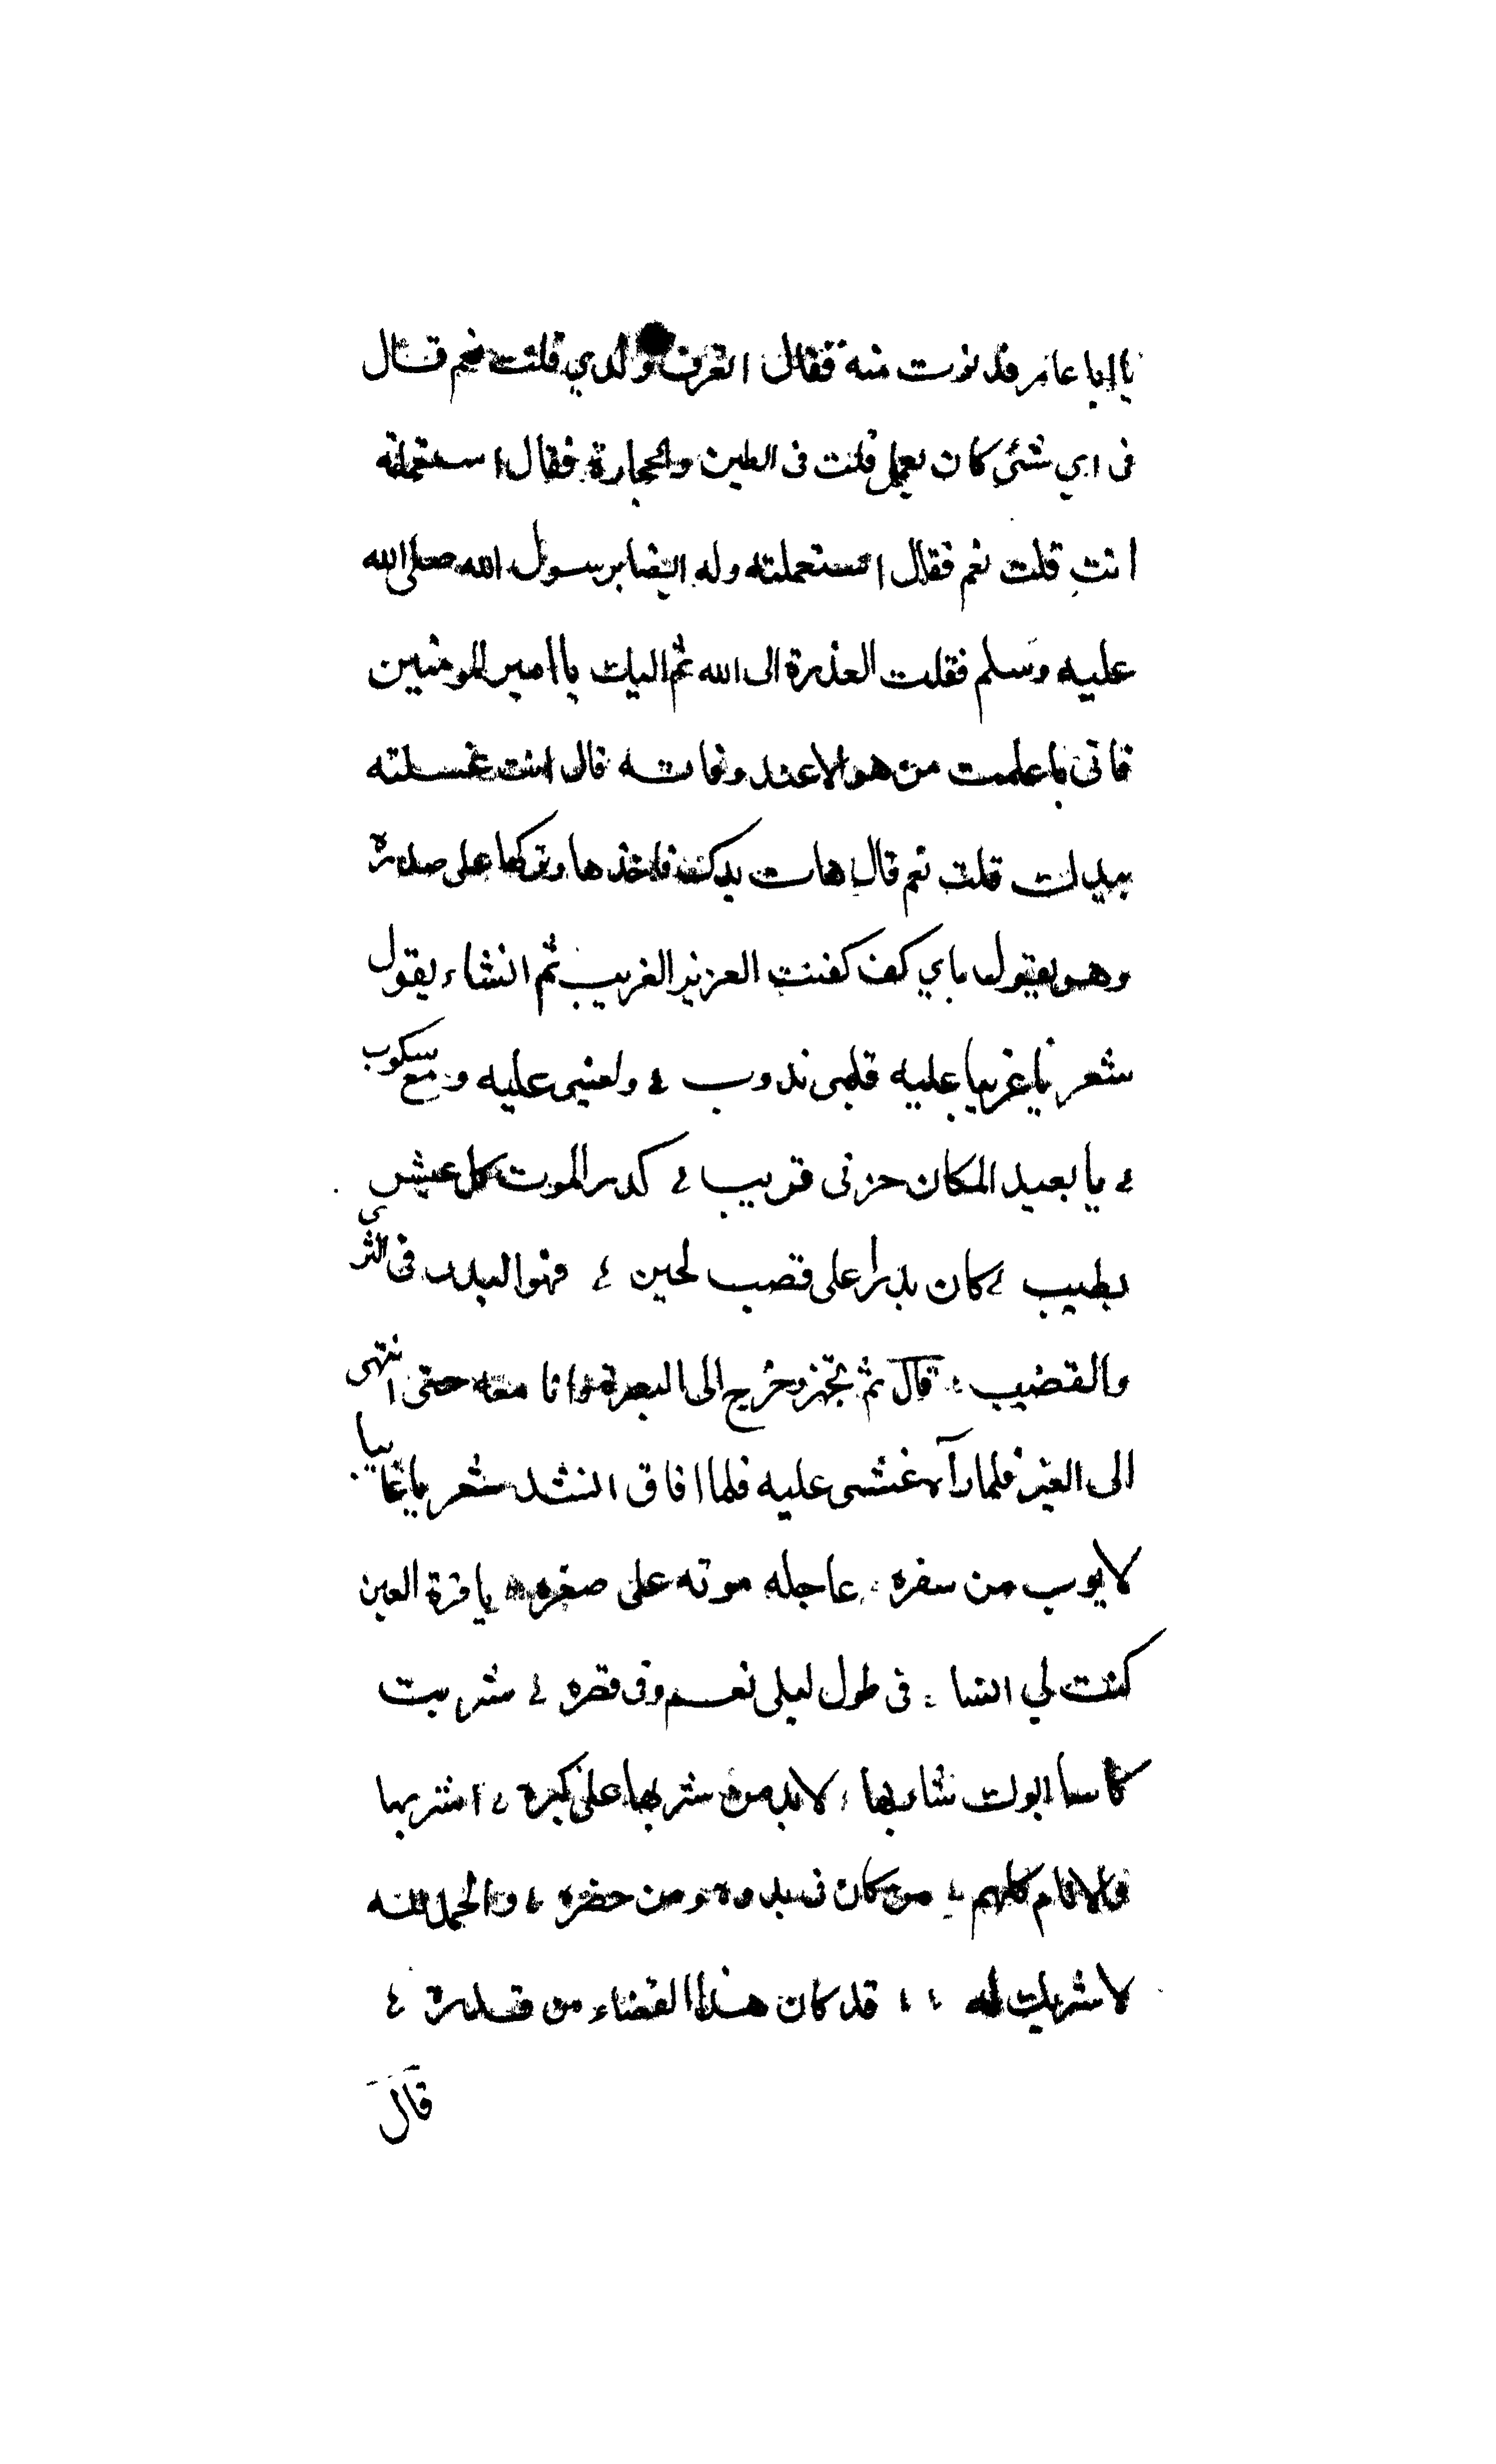 يا ابا عامر فدنوت منه فقال اتعرف ولدي قلت نعم قال
في اي شئي كان يعمل قلت في الطين والحجارة فقال استعملته
انت قلت نعم فقال استعملته وله اتصا برسول الله صلى الله
عليه وسلم فقلت العذرة الى الله ثم اليك يا امير المومنين
فاني ما علمت من هو الا عند وفاته قال انت غسلته
بيدك قلت نعم قال هات يدك فاخذها وتركها على صدره
وهو يقول باي كف كفنت العزيز الغريب ثم انشاء يقول
شعر يا غريبا عليه قلبي يذوب ولعيني عليه دمع سكوب
يا بعيد المكان حزني قريب كدر الموت كل عيش
يطيب كان بدرا على قصب لجين فهو البدر في الثرى
والقضيب قال ثم تجهز وخرج الى البصرة وانا معه حتى انتهى
الى القبر فلما رآه غشى عليه فلما افاق انشد شعر يا غايبا
لا يوب من سفره عاجله موته على صغره يا قرة العين
كنت لي انسا في طول ليلى نعم وفي قصره شربت
كاسا ابوك شاربها لابد من شربها على كبره اشربها
والانام كلهم من كان في بدوه ومن حضره والحمد لله
لا شريك له قد كان هذا القضاء من قدره
قال